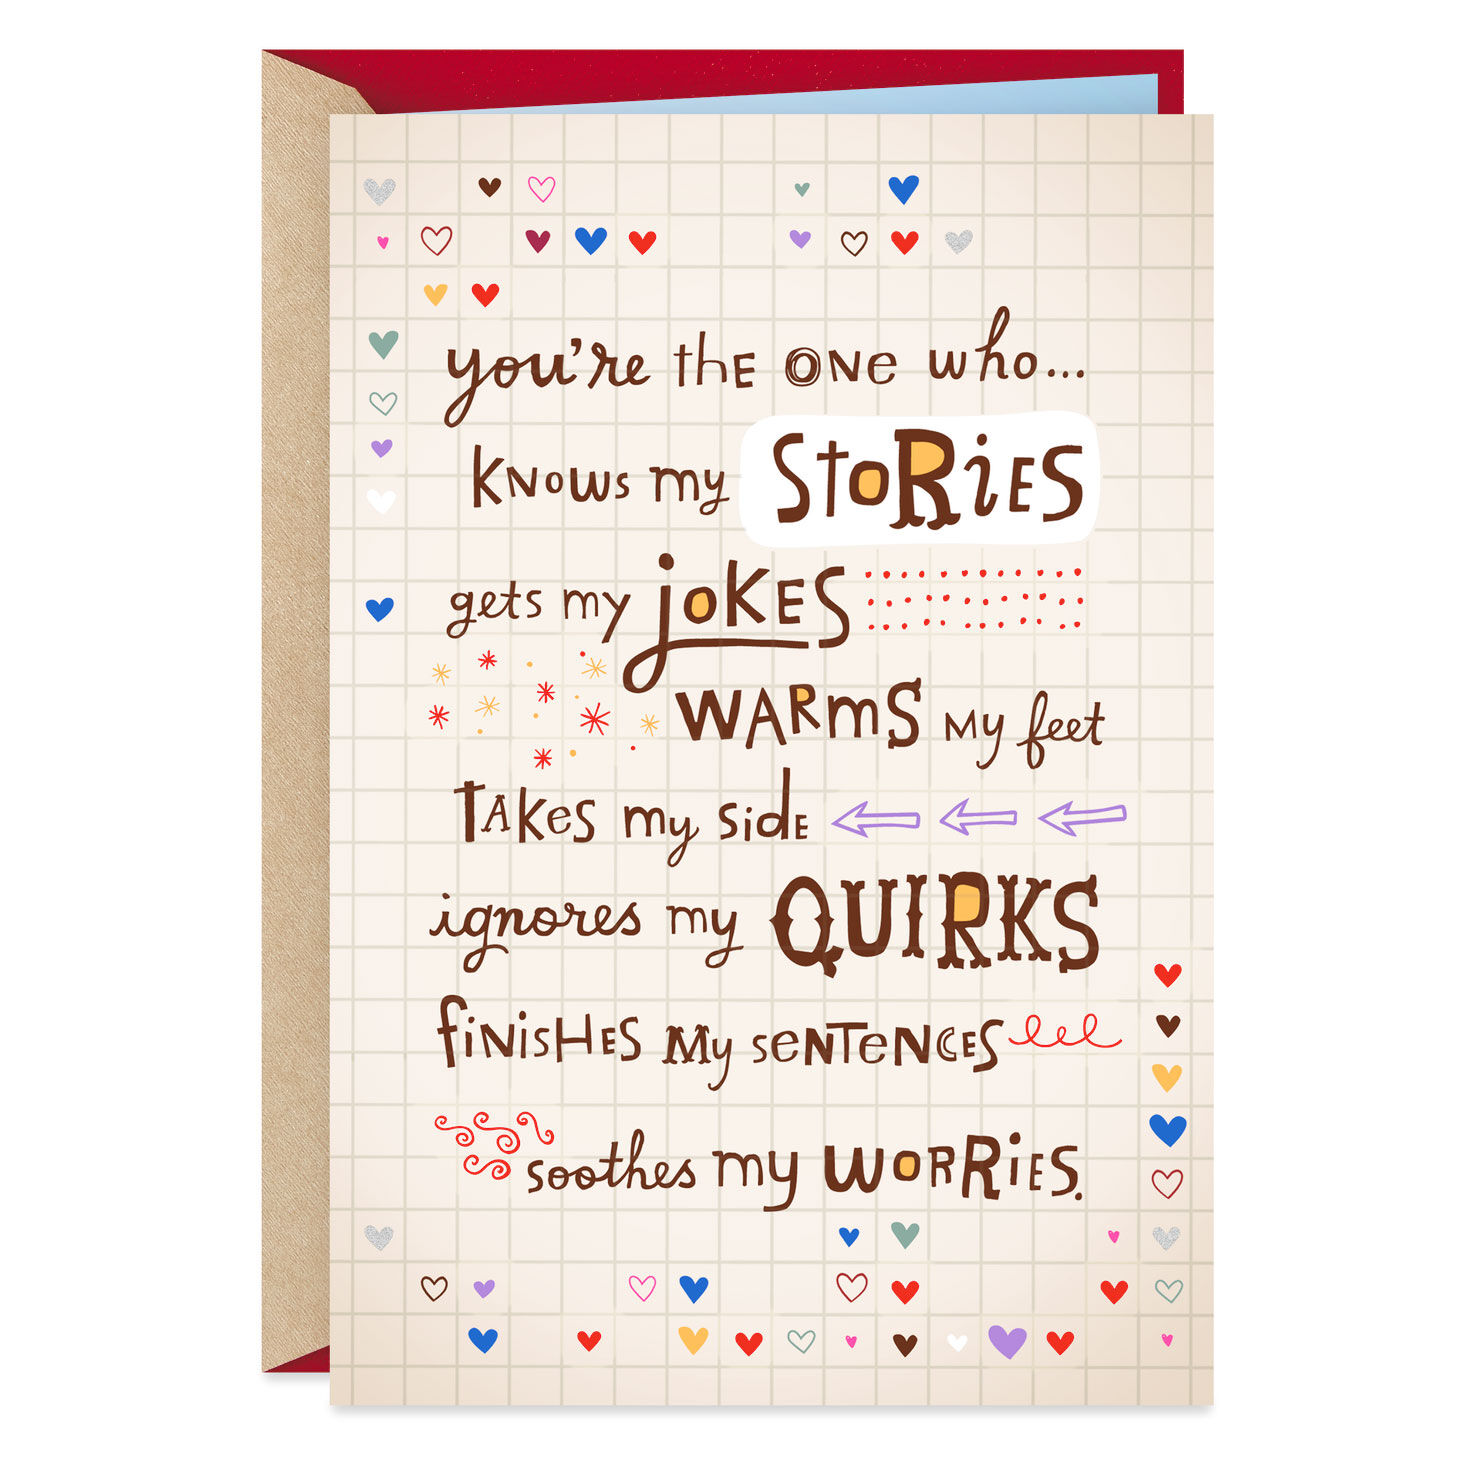 you're the one who...
knows my STORiES
gets my jokes
WARmS my feet
Takes my side
ignores my QUIRKS
finishes my sentences
soothes my WORRiES.